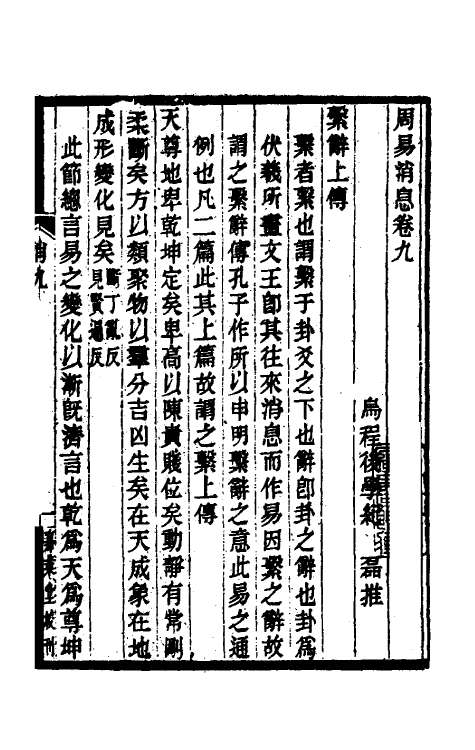 周易消息卷九
烏程後學紀 磊推
繫辭上傳
繫者繫也謂繫于卦爻之下也辭卽卦之辭也卦爲
伏羲所畫文王卽其往來消息而作易因繫之辭故
謂之繫辭傳孔子作所以申明繫辭之意此易之通
例也凡二篇此其上篇故謂之繫上傳
天尊地卑乾坤定矣卑高以陳貴賤位矣動靜有常剛
柔斷矣方以類聚物以羣分吉凶生矣在天成象在地
成形變化見矣斷丁亂反見賢遍反
此節總言易之變化以漸旣濟言也乾爲天爲尊坤
消九
一
嘉業堂校刊